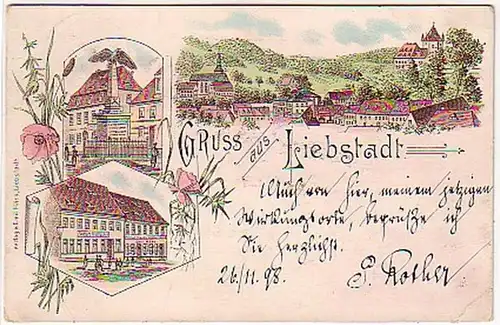 Gruss aus Liebstadt
Auch von hier, meinem jetzigen
Wirkungsorte, begrüße ich
Sie herzlichst.
26/11.98.